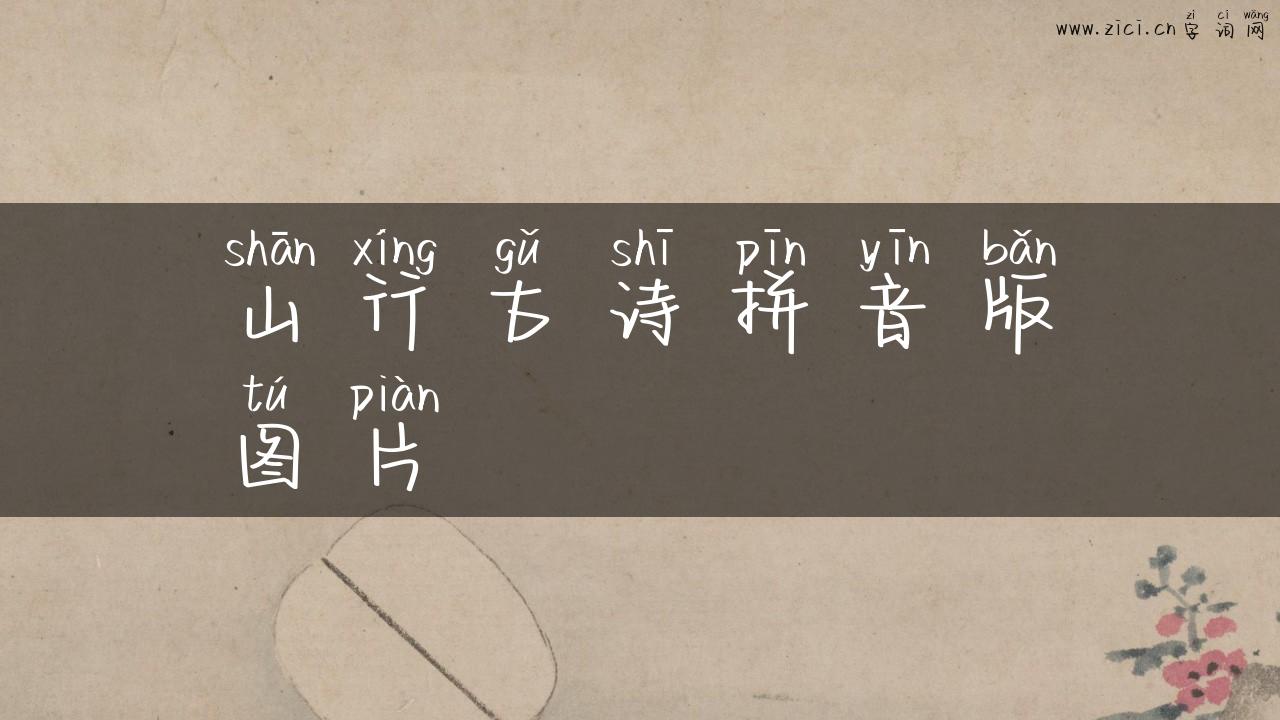 zì cí wǎng
www.zici.cn字词网
shān xíng gǔ shī pīn yīn bǎn
山行古诗拼音版
tú piàn
图片